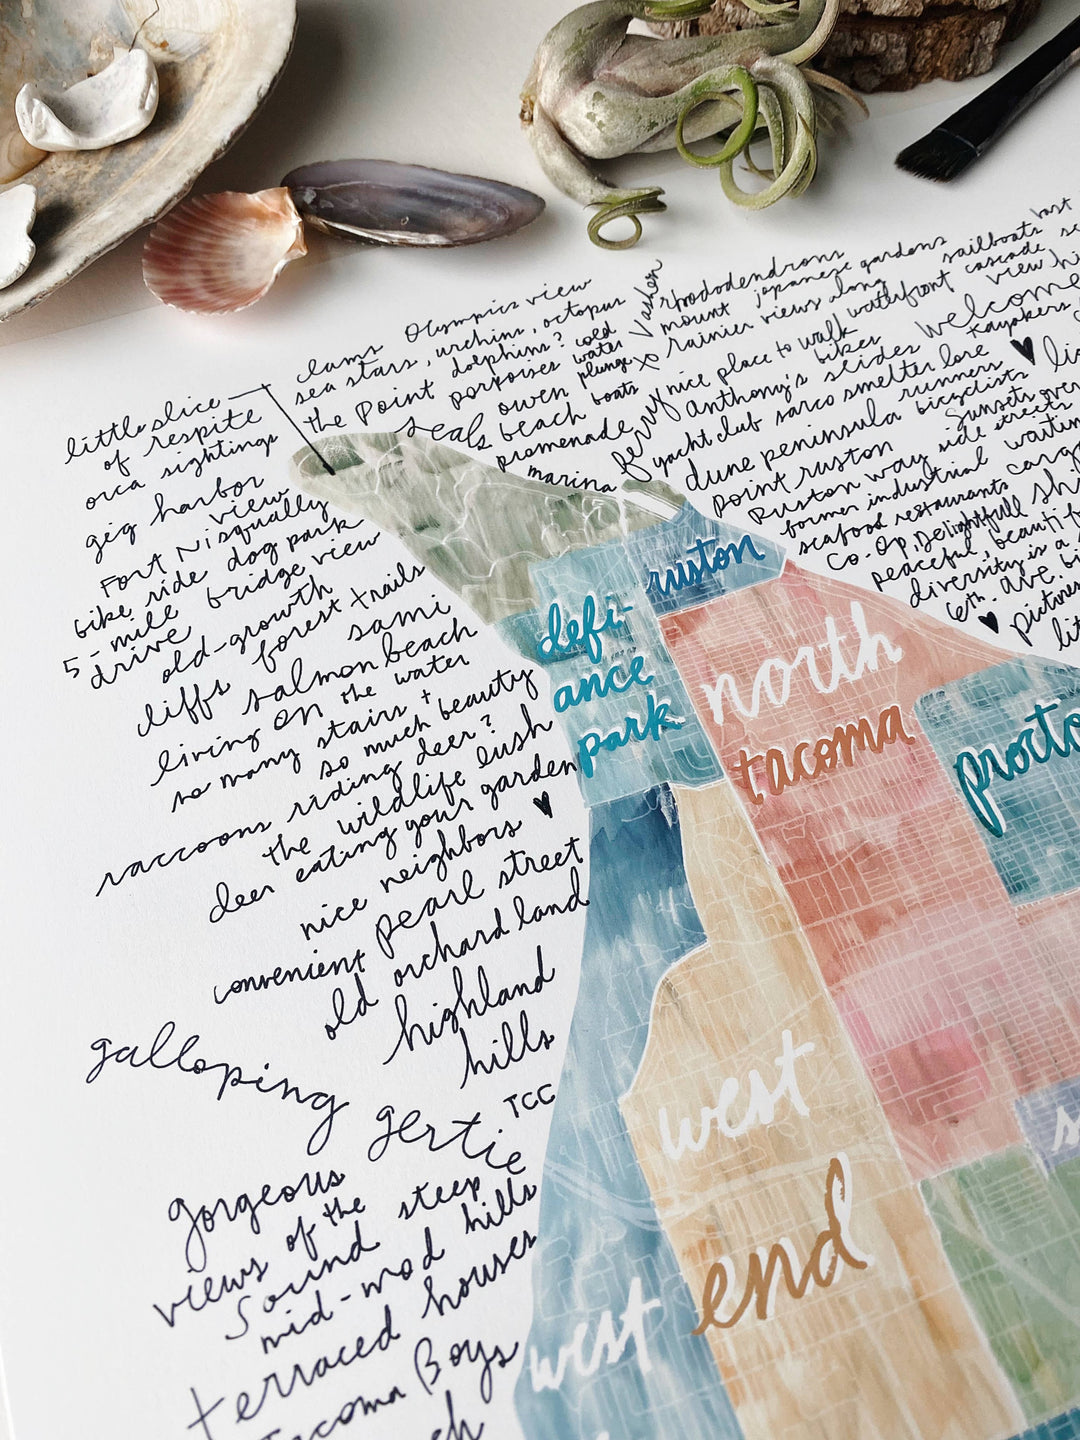 little slice
of respite
orca sightings
gig harbor
view
Fort Nisqually
bike ride dog park
5-mile bridge view
drive
old-growth
forest trails
cliffs
sami
salmon beach
living on the water
so many stairs +
so much beauty
raccoons riding deer?
the wildlife lush
deer eating your garden
nice neighbors ♥
convenient pearl street
old orchard land
highland
hills
TCC
galloping
gertie
gorgeous
views of the
Sound steep
mid-mod hills
terraced houses
Tacoma Boys
clams Olympics view
sea stars, urchins, octopus
the Point dolphins? cold
porpoises water
seals owen plunge
beach boats
promenade
marina
ferry
Vashon
rhododendrons
mount japanese gardens
rainier views along
sailboats
waterfront cascade
nice place to walk
view
anthony's bikes
slides welcome
Kayakers
yacht club sarco smelter lore
dune peninsula runners
bicyclists
point ruston
sunsets over
ruston way side streets
former industrial
seafood restaurants
Co-Op, Delightfull
peaceful, beauti
diversity is a
6th. ave.
♥
ruston
defi-
ance
park
north
tacoma
procto
west
end
west